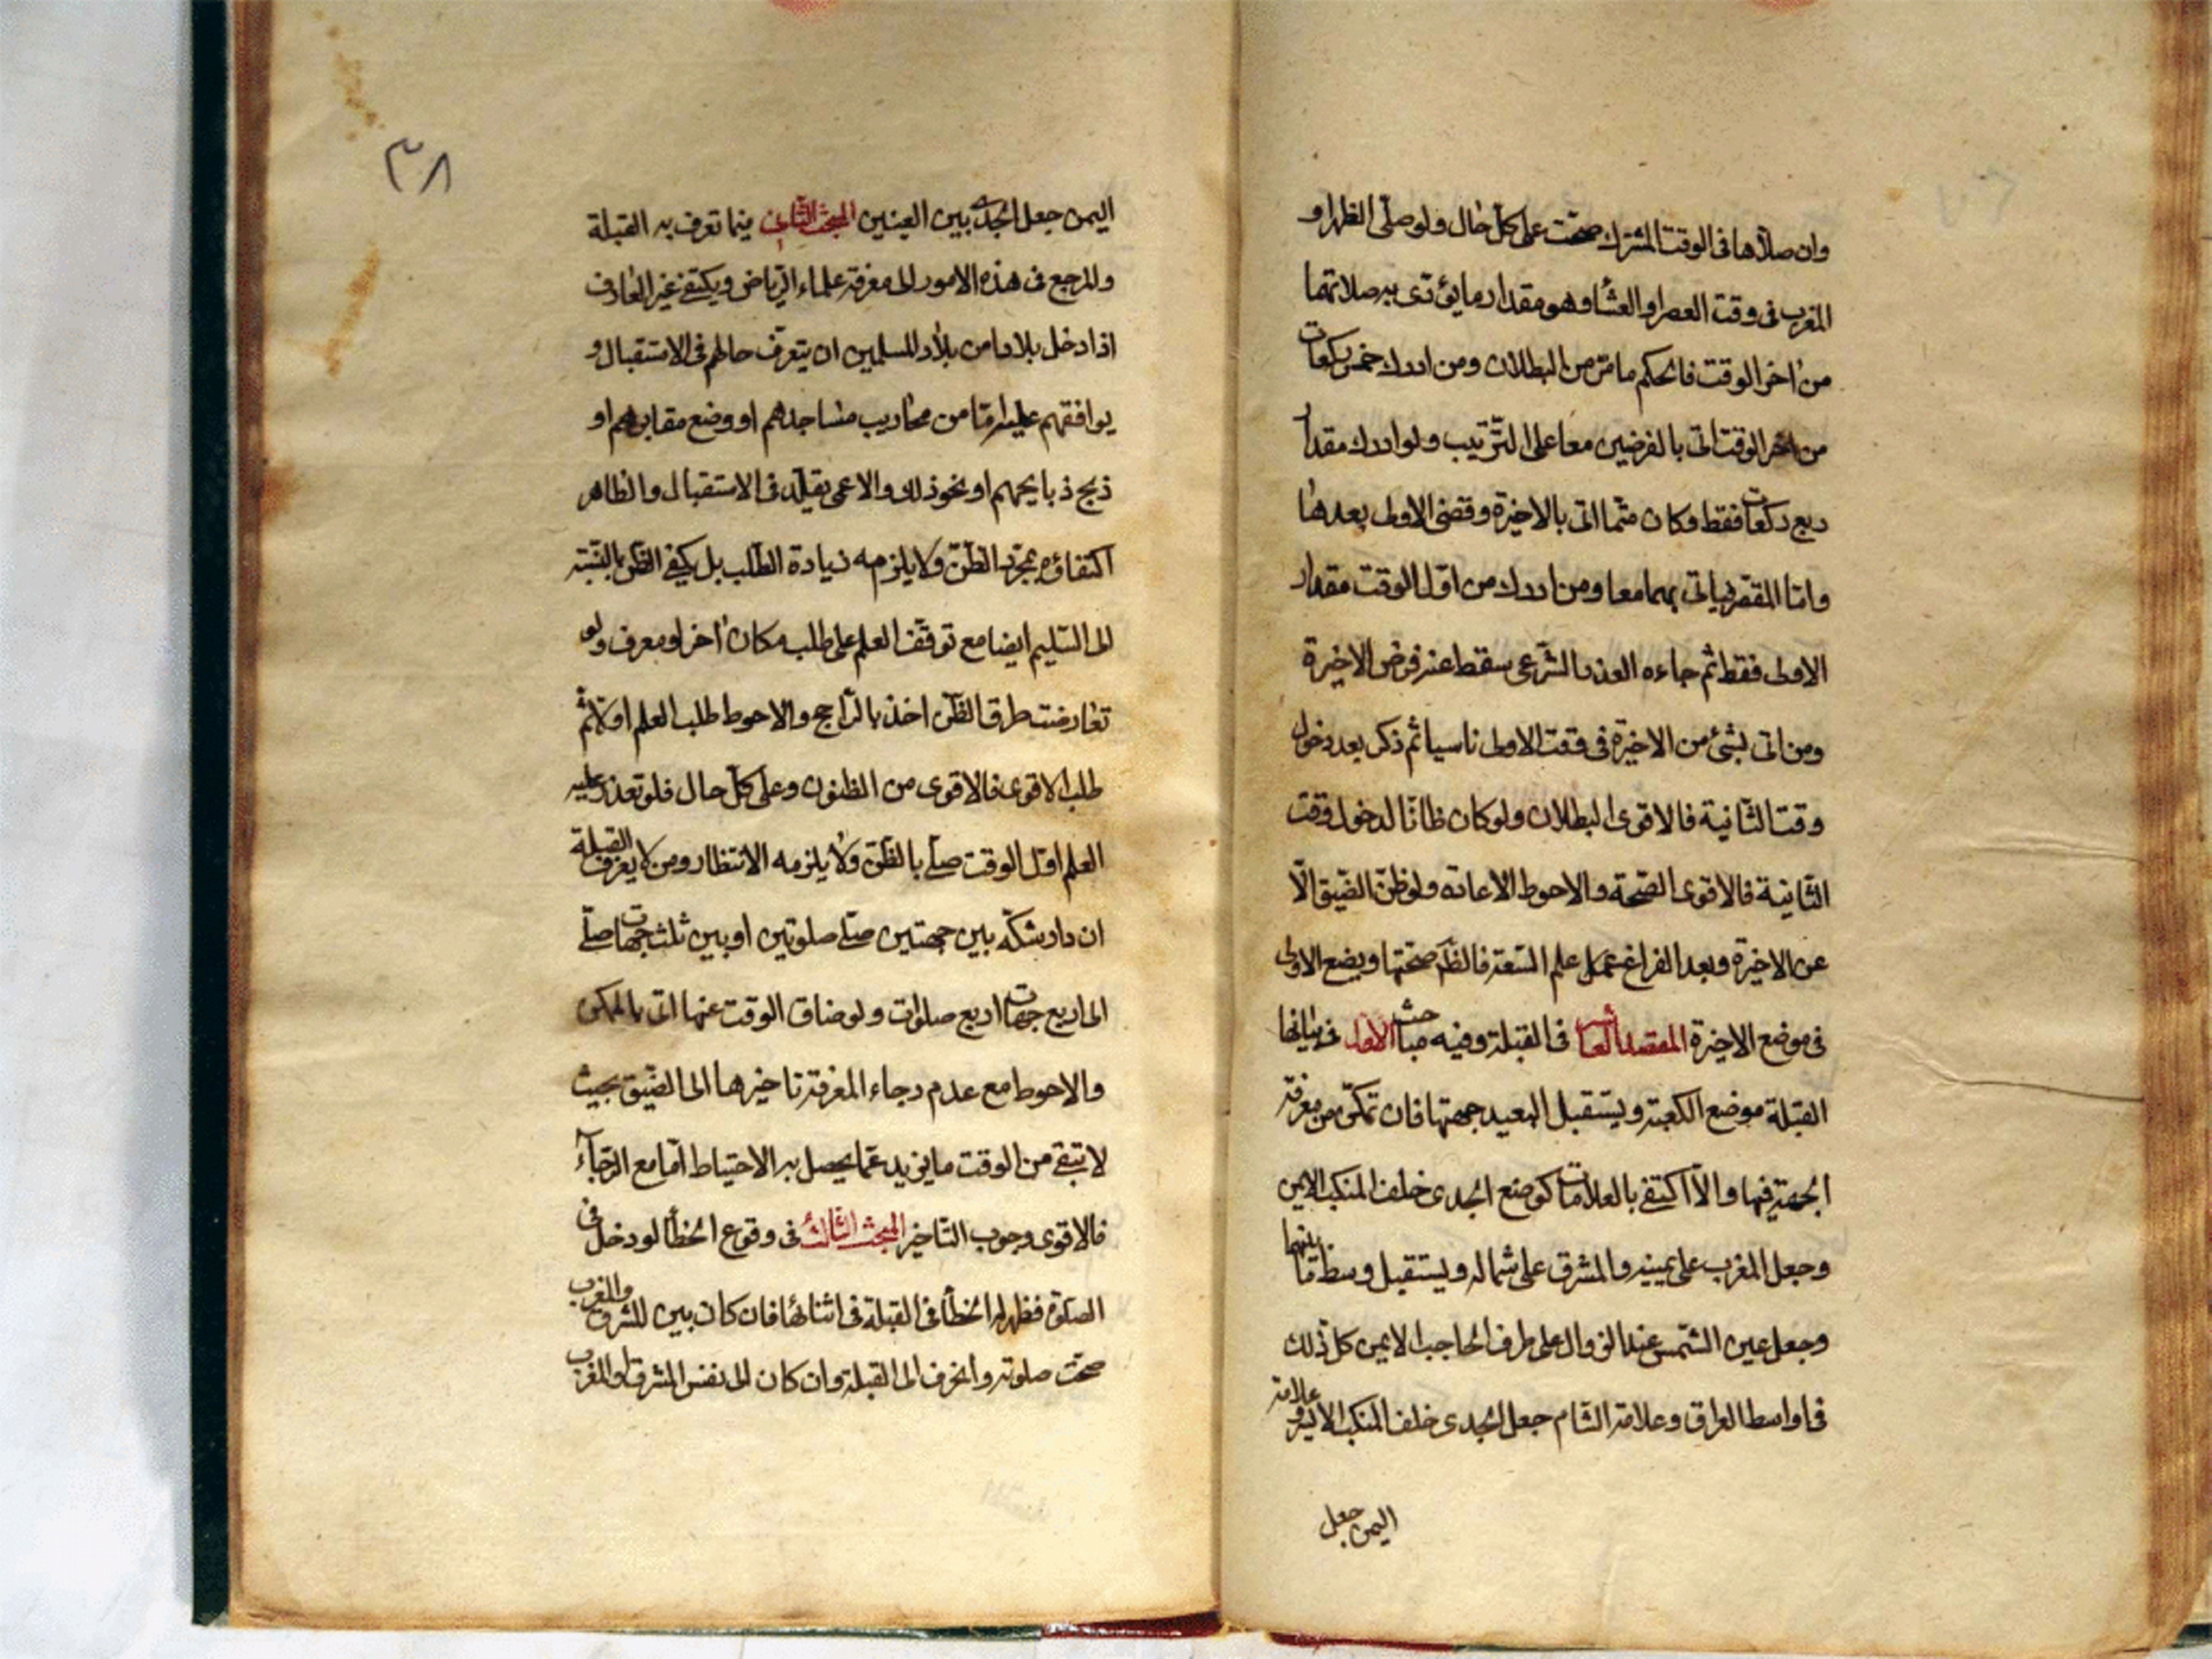 وان صلاها فى الوقت المشترك صحّت على كلّ حال ولو صلّى الظهر او
المغرب فى وقت العصر او العشاء وهو مقدار ما يؤدّى به صلاتهما
من اخر الوقت فالحكم ما مرّ من البطلان ومن ادرك خمس ركعات
من اخر الوقت اتى بالفرضين معا على التّرتيب ولو ادرك مقدار
ربع ركعات فقط وكان متمّا اتى بالاخيرة وقضى الاولى بعدها
وامّا المقصّر فياتى بهما معا ومن ادرك من اوّل الوقت مقدار
الاولى فقط ثم جاءه العذر الشّرعى سقط عنه فرض الاخيرة
ومن اتى بشئ من الاخيرة فى وقت الاولى ناسيا ثم ذكر بعد دخول
وقت الثّانية فالاقوى البطلان ولو كان ظانّا لدخول وقت
الثّانية فالاقوى الصّحة والاحوط الاعادة ولو ظنّ الضّيق الّا
عن الاخيرة وبعد الفراغ علم السّعة فالظّ صحّتها ويضع الاولى
فى موضع الاخيرة المقصد العاشر فى القبلة وفيه مباحث الاول فى بيانها
القبلة موضع الكعبة ويستقبل البعيد جهتها فان تمكّن من معرفة
الجهة فبها والّا اكتفى بالعلامات كوضع الجدى خلف المنكب الايمن
وجعل المغرب على يمينه والمشرق على شماله ويستقبل وسط ما بينهما
وجعل عين الشّمس عند الزوال على طرف الحاجب الايمن كل ذلك
فى اواسط العراق وعلامة الشّام جعل الجدى خلف المنكب الايسر وعلامة
اليمن جعل
٣٨
اليمن جعل الجدى بين العينين المبحث الثّانى فيما تعرف به القبلة
والمرجع فى هذه الامور الى معرفة علماء الرّياضى ويكتفى غير العارف
اذا دخل بلادا من بلاد المسلمين ان يتعرّف حالهم فى الاستقبال و
يوافقهم عليه امّا من محاريب مساجدهم او وضع مقابرهم او
ذبح ذبايحهم او نحو ذلك والاعمى يقلّد فى الاستقبال والظاهر
اكتفاؤه بمجرّد الظّنّ ولا يلزمه زيادة الطّلب بل يكفى الظّنّ بالنّسبة
الى السّليم ايضا مع توقّف العلم على طلب مكان اخر او معرف ولو
تعارضت طرق الظّنّ اخذ بالرّاجح والاحوط طلب العلم اوّلا ثم
طلب الاقوى فالاقوى من الظنون وعلى كلّ حال فلو تعذر عليه
العلم اوّل الوقت صلّى بالظّنّ ولا يلزمه الانتظار ومن لا يعرف القبلة
ان دار شكّه بين جهتين صلّى صلوتين او بين ثلث جهات صلّى
الى اربع جهات اربع صلوات ولو ضاق الوقت عنها اتى بالممكن
والاحوط مع عدم رجاء المعرفة تاخيرها الى الضّيق بحيث
لا تبقى من الوقت ما يزيد عمّا يحصل به الاحتياط امّا مع الرّجاء
فالاقوى وجوب التّاخير المبحث الثّالث فى وقوع الخطأ لو دخل فى
الصّلوة فظهر له الخطأ فى القبلة فى اثنائها فان كان بين المشرق والمغرب
صحّت صلوته وانحرف الى القبلة وان كان الى نفس المشرق او المغرب